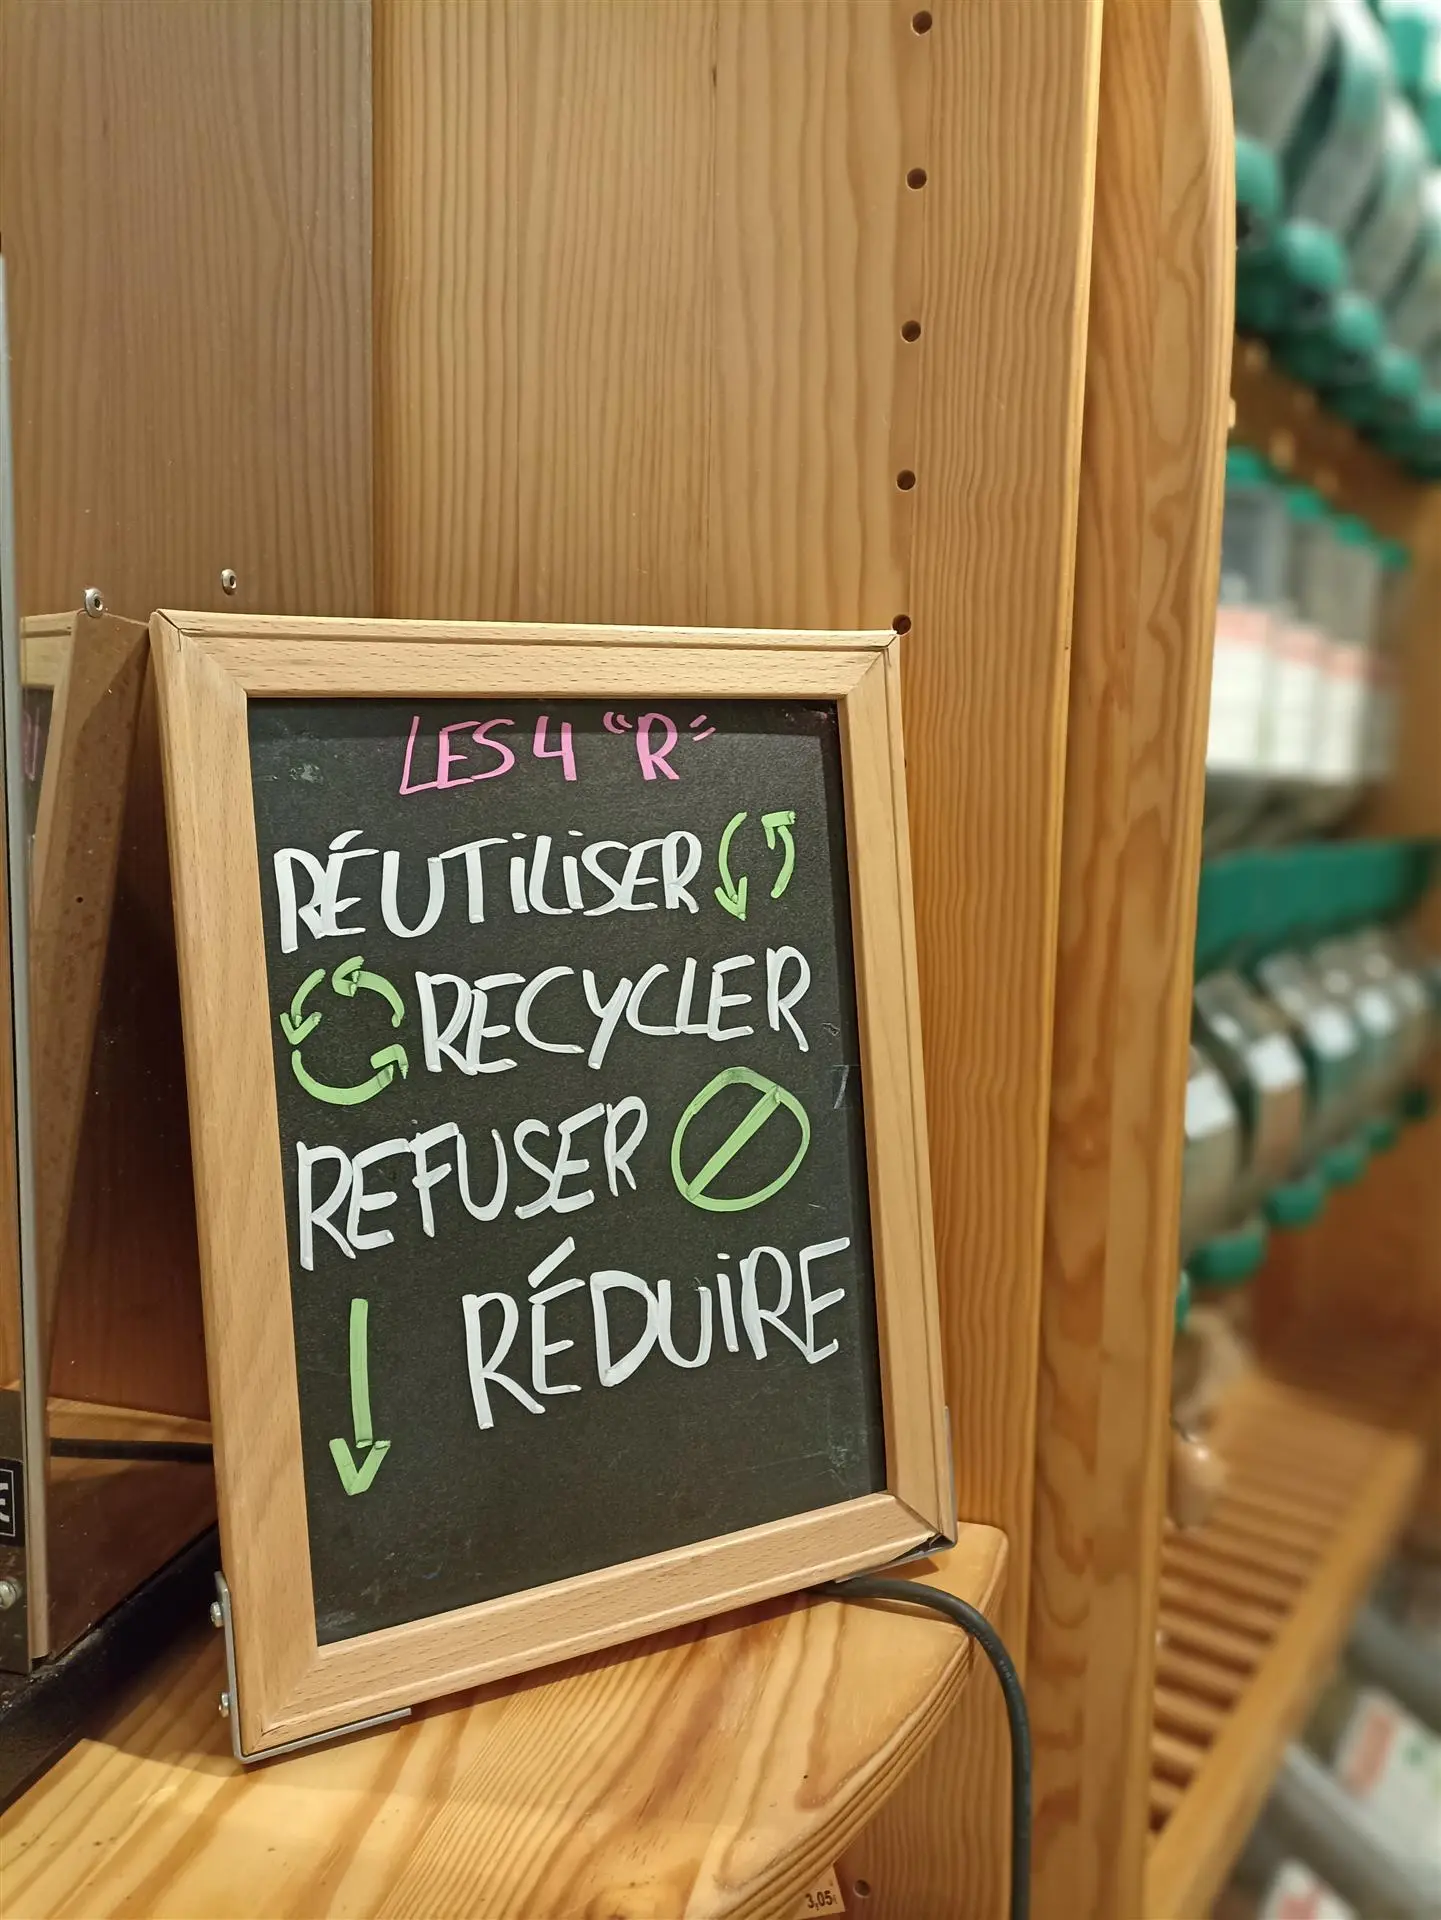 LES 4 "R"
RÉUTILISER
RECYCLER
REFUSER
RÉDUIRE
3,05